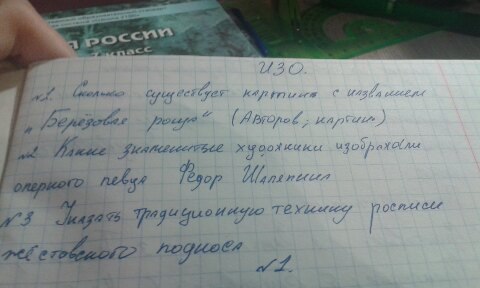 Я РОССИИ
7 класс
ИЗО.
№1. Сколько существует картин с названием
"Берёзовая роща" (Авторов, картин)
№2 Какие знаменитые художники изображали
оперного певца Фёдор Шаляпина
№3 Указать традиционную технику росписи
жёстовского подноса
№1.